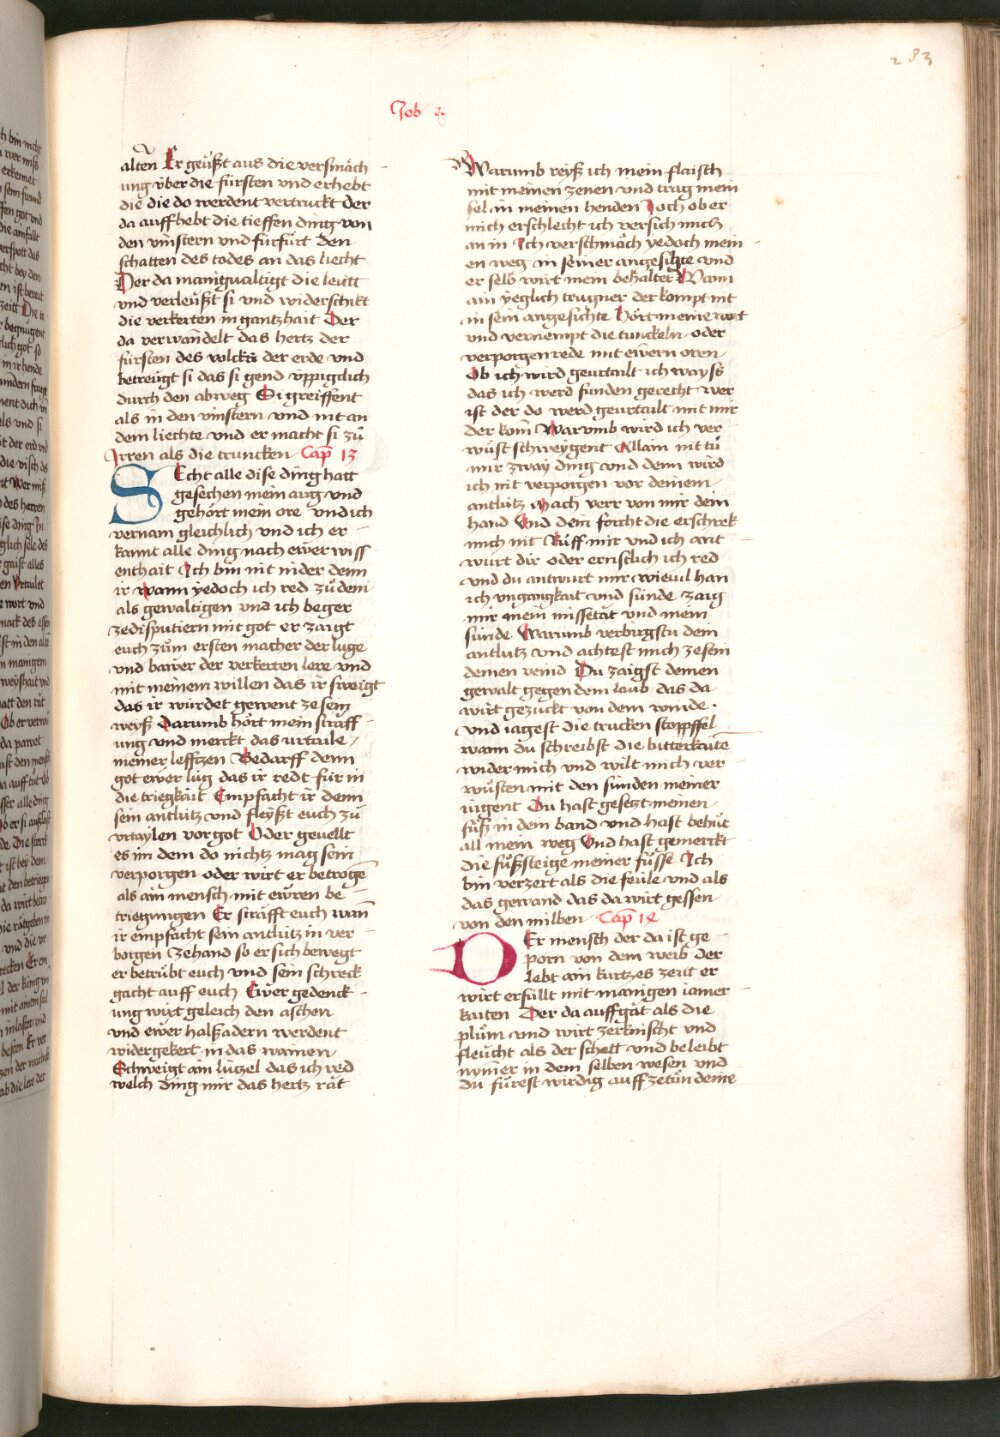 283
Job
alten Er geüßt aus die versmäch
ung vber die fürsten vnd erhebt
die die do werdent vertruckt Der
da auffhebt die tieffen ding von
den vinstern vnd fürfürt den
schatten des todes an das liecht
Der da manigualtigt die leütt
vnd verleüßt si vnd widerschikt
die verkerten in gantzhait Der
da verwandelt das hertz der
fürsten des volcks der erde vnd
betreügt si das si gend vppigclich
durch den abweg Si greiffent
als in den vinstern vnd nit an
dem liechte vnd er macht si zů
Irren als die truncken Cap 13
Secht alle dise ding hatt
gesechen mein aug vnd
gehört mein ore vnd ich
vernam gleichlich vnd ich er
kannt alle ding nach ewer wiss
enthait Ich bin nit nider denn
ir wann yedoch ich red zů dem
als gewaltigen vnd ich beger
zedisputiern mit got er zaigt
euch zům ersten macher der luge
vnd bawer der verkerten lere vnd
mit meinem willen das ir sweigt
das ir wurdet gewent ze sein
weyß Darumb hört mein straff
ung vnd merckt das vrtaile
meiner leffzen Bedarff denn
got ewer lug das ir redt für in
die triegkait Empfacht ir denn
sein antlutz vnd fleyßt euch zů
vrtaylen vor got Oder geuellt
es im dem do nichtz mag sein
verporgen oder wirt er betrogē
als ain mensch mit ewren be
triegnungen Er strafft euch wañ
ir empfacht sein antlutz in ver
borgen Zehand so er sich bewegt
er betrübt euch vnd sein schreck
gacht auff euch Ewer gedenck
ung wirt geleich den aschen
vnd ewer halßadern werdent
widergekert in das
Schweigt ain lützel das ich red
welch ding mir das hertz rät
Warumb reyß ich mein flaisch
mit meinen zenen vnd trag mein
sel in meinen henden Joch ob er
mich erschlecht ich versich mich
an in Ich verschmäch yedoch mein
en weg in seiner angesihte vnd
er selb wirt mein behalter Wann
ain yeglich trugner der kompt nit
in sein angesichte Hört meine wort
vnd vernempt die tunckeln oder
verporgen rede mit ewern oren
Ob ich wird geurtailt ich wayss
das ich werd funden gerecht wer
ist der do werd geurtailt mit mir
der kom Warumb wird ich ver
wüst schweygent Allain nit tů
mir zway ding vnd denn wird
ich nit verporgen vor deinem
antlutz Mach verr von mir dein
hand Vnd dein forcht die erschrek
mich nit Rüff mir vnd ich ant
wurt dir oder ernstlich ich red
vnd du antwurt mir wieuil han
ich vngangkait vnd sünde zaig
mir mein missetat vnd mein
sünde Warumb verbirgstu dein
antlutz vnd achtest mich ze sein
deinen veind Du zaigst deinen
gewalt gegen dem laub das da
wirt gezuckt von dem winde
vnd iagest die trucken stoppffel
wann du schreibst die bitterkaite
wider mich vnd wilt mich ver
wüsten mit den sunden meiner
iugent Du hast gesetzt meinen
fůß in dem band vnd hast behüt
all mein weg Vnd hast gemerckt
die fůßsteige meiner füsse Ich
bin verzert als die feüle vnd als
das gewand das da wirt gessen
von den milben Cap 14
Der mensch der da ist ge
porn von dem weib der
lebt ain kurtzes zeit er
wirt erfüllt mit manigen iamer
kaiten Der da auffgät als die
plům vnd wirt zerknischt vnd
fleücht als der schatt vnd beleibt
nymer in dem selben wesen vnd
du fürest wirdig auffzetůn deine